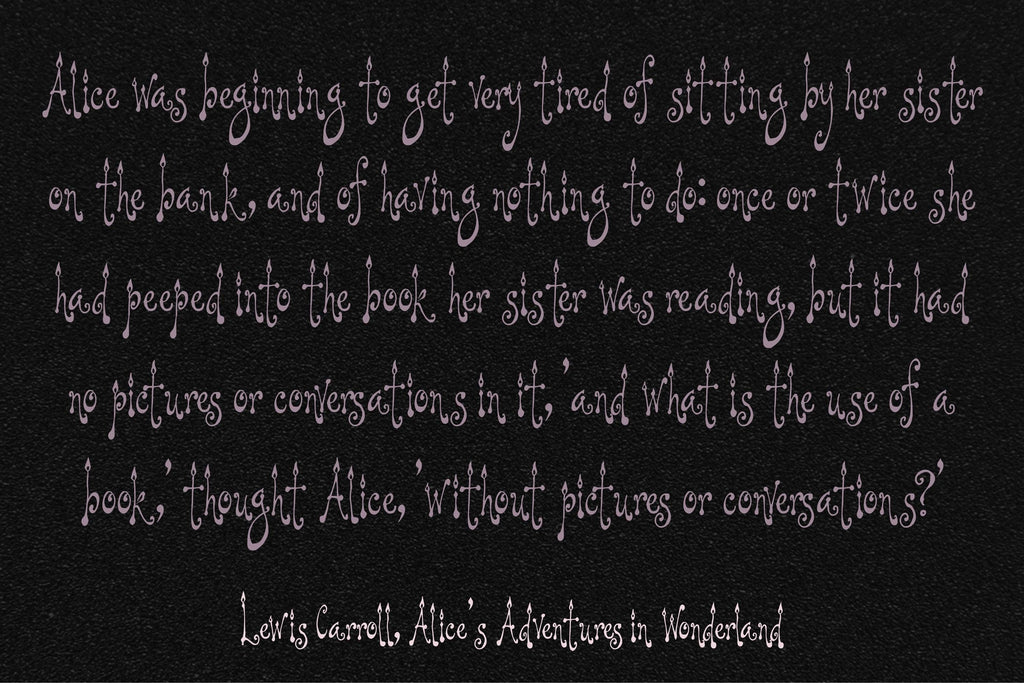 Alice was beginning to get very tired of sitting by her sister
on the bank, and of having nothing to do: once or twice she
had peeped into the book her sister was reading, but it had
no pictures or conversations in it,'and what is the use of a
book,' thought Alice, 'without pictures or conversations?'
Lewis Carroll, Alice's Adventures in Wonderland